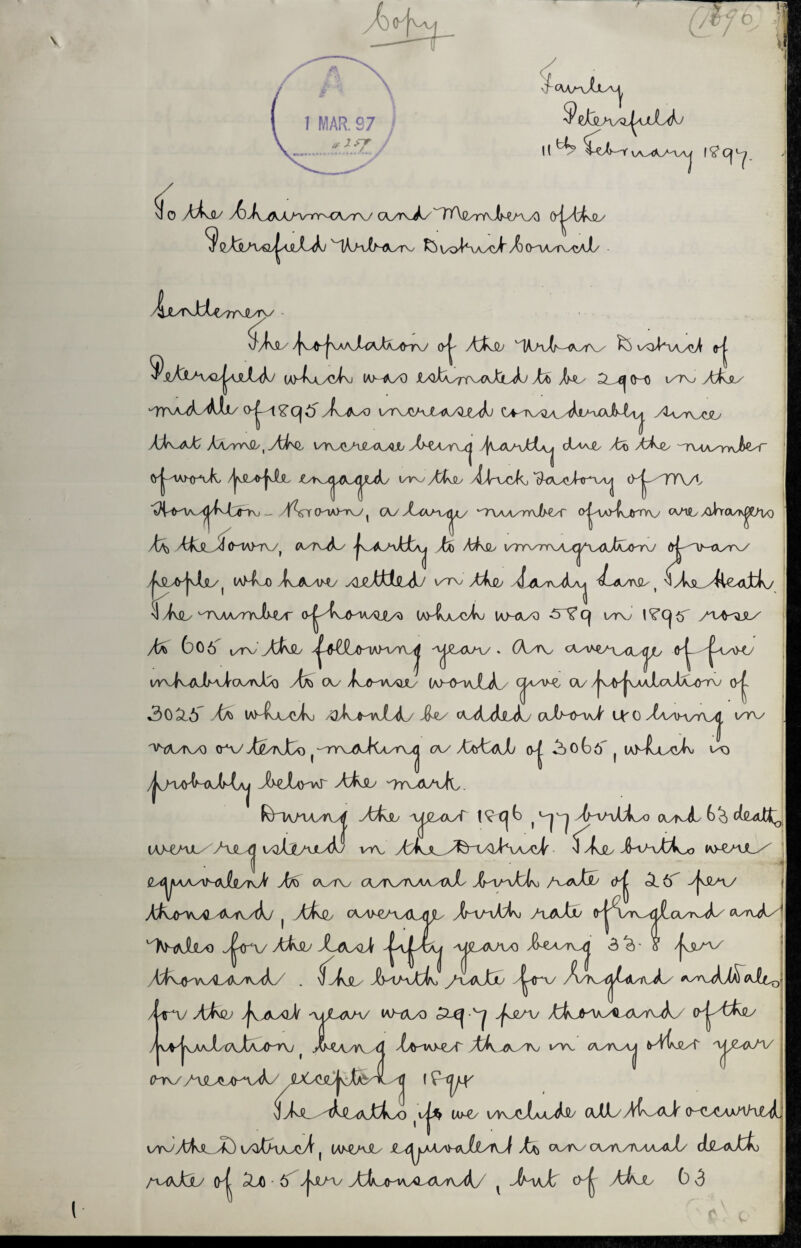 Copy
(1896)
A
1 MAR. 97
Fawley
Petersfield
11th February 1897.
To the Chairman and Members of the
Petersfield Urban District Council.
Gentlemen.
The population of the Urban District of
Petersfield which was estimated to be 2900 in the
middle of 1895 has increased considerably since
that time, the increase being partly due to the number
of work people engaged in the Brick Factory of Mr.
Houghton-Brown, a large number of whom are strangers
to the Town, and partly to the immigration of
people, who have settled in the Sandy Lane, The Heath.
The number of houses which was 589 in 1895 rose
to 605 in the following year. An average of five
inhabitants to a house would give a population of
3025 to which should be added about 40 living in
vans or tents, making a total of 3065, which is
probably below the mark.
During the year 1896, 77 births and 63 deaths
were registered in the District. The births were
equivalent to an annual birth rate of 25 per
thousand, the average birth rate of England and
Wales for the last fifty years being 33.8 per
thousand. The birth rate for England and Wales
for the past year was 29.7 per thousand of the
population, being lower than in any other year
on record excepting 1894
The deaths, if we include all that occurred
in the District, were equivalent to an annual death
rate of 20.5 per thousand, but of the 63